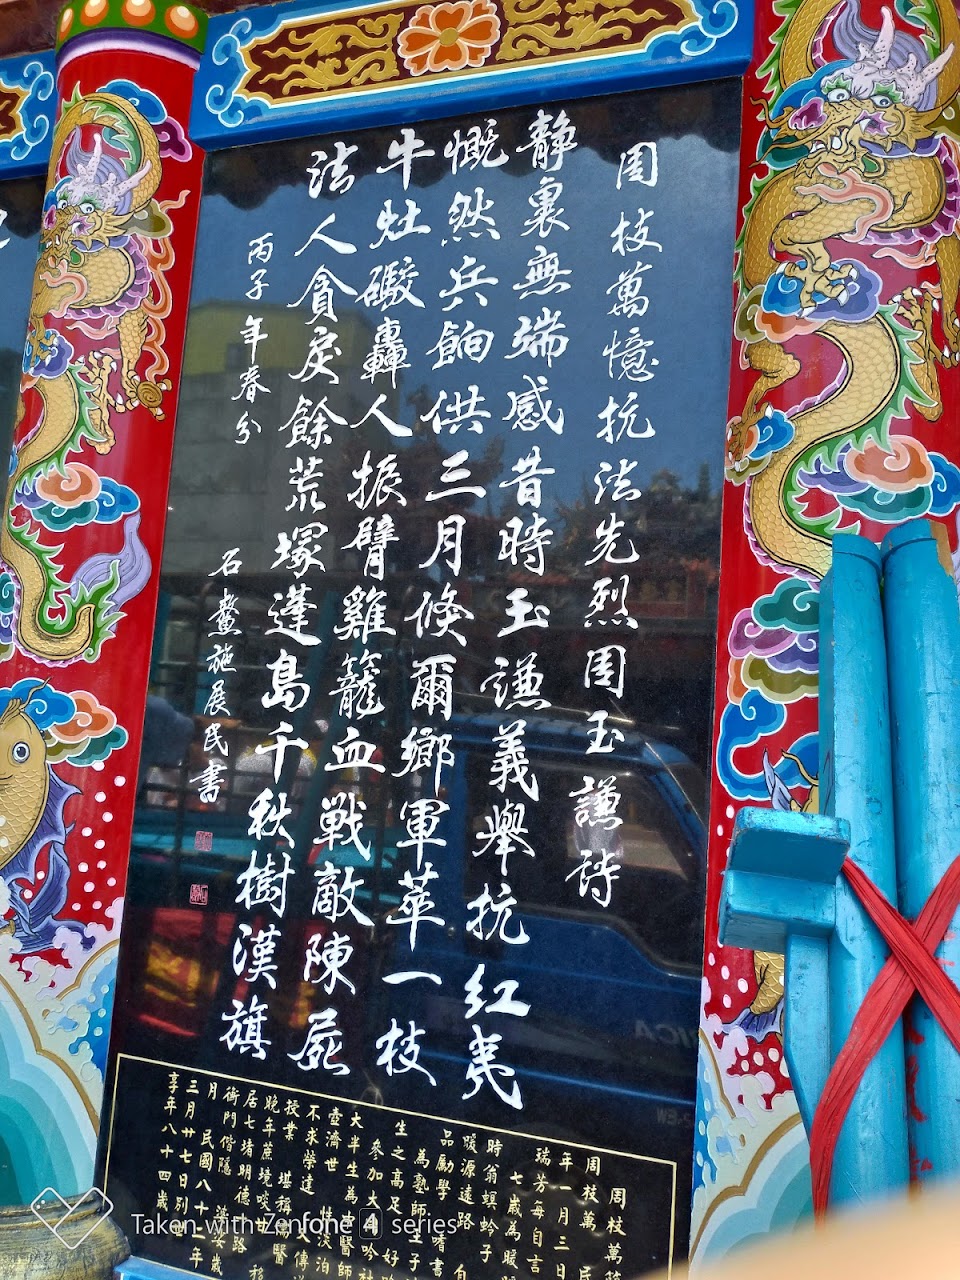 周枝萬憶抗法先烈周玉謙詩
靜裏無端感昔時玉謙義舉抗紅夷
慨然兵餉供三月倏爾鄉軍萃一枝
牛灶礮轟人振臂雞籠血戰敵陳屍
法人貪戾餘荒塚蓬島千秋樹漢旗
丙子年春分
石鰲施展民書
周枝萬
周枝萬 民
年一月三日
瑞芳每自言
七歲為暖暖
時翁螟蛉子
暖源遠路 自
品勵學 嗜書
為塾師王子
生之高足 好
參加大 吟社
大半生為 醫師
壺濟世 恬淡泊
不求榮達 又傳
授業 堪稱 醫
晚年蔗境啖 移
居七堵明德路
衡門偕隱 歲
月 民國八十二年
三月廿七日別世
享年八十四歲
Taken with Zenfone 4 series